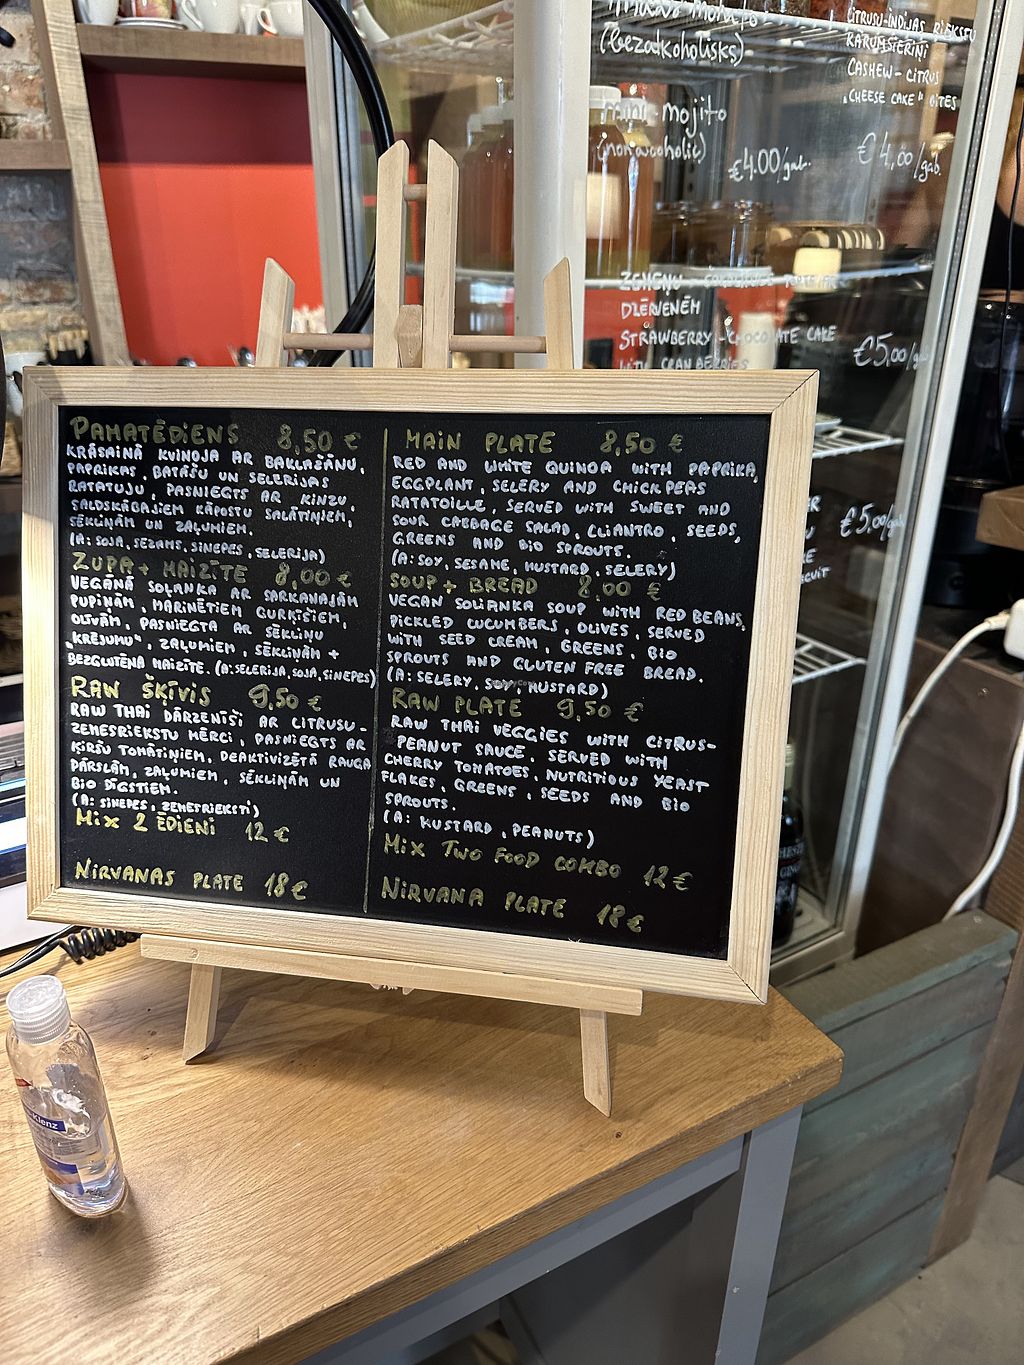 (bezalkoholisks)
mini-mojito
(nonalcoholic)
€4.00/gab.
KĀRUMSIERIŅI
CASHEW-CITRUS
"CHEESE CAKE" BITES
€4,00/gab.
ZEMEŅU
DZĒRVENĒM
STRAWBERRY-CHOCOLATE CAKE
WITH CRANBERRIES
€5,00/gab
€5,00/gab
PAMATĒDIENS 8,50 €
KRĀSAINĀ KVINOJA AR BAKLAŽĀNU,
PAPRIKAS, BATĀŠU UN SELERIJAS
RATATUJU, PASNIEGTS AR KINZU,
SALDSKĀBAJIEM KĀPOSTU SALĀTIŅIEM,
SĒKLIŅĀM UN ZAĻUMIEM.
(A: SOJA, SEZAMS, SINEPES, SELERIJA)
ZUPA + MAIZĪTE 8,00 €
VEGĀNĀ SOĻANKA AR SARKANAJĀM
PUPIŅĀM, MARINĒTIEM GURĶĪŠIEM,
OLĪVĀM, PASNIEGTA AR SĒKLIŅU
"KRĒJUMU", ZAĻUMIEM, SĒKLIŅĀM +
BEZGLUTĒNA MAIZĪTE. (A: SELERIJA, SOJA, SINEPES)
RAW ŠĶĪVIS 9,50 €
RAW THAI DĀRZENIŠI AR CITRUSU-
ZEMESRIEKSTU MĒRCI, PASNIEGTS AR
ĶIRŠU TOMĀTIŅIEM, DEAKTIVIZĒTĀ RAUGA
PĀRSLĀM, ZAĻUMIEM, SĒKLIŅĀM UN
BIO DĪGSTIEM.
(A: SINEPES, ZEMETRIEKSTI)
MIX 2 ĒDIENI 12 €
NIRVANAS PLATE 18 €
MAIN PLATE 8,50 €
RED AND WHITE QUINOA WITH PAPRIKA,
EGGPLANT, SELERY AND CHICKPEAS
RATATOILLE, SERVED WITH SWEET AND
SOUR CABBAGE SALAD, CLIANTRO, SEEDS,
GREENS AND BIO SPROUTS.
(A: SOY, SESAME, MUSTARD, SELERY)
SOUP + BREAD 8,00 €
VEGAN SOLIANKA SOUP WITH RED BEANS,
PICKLED CUCUMBERS, OLIVES, SERVED
WITH SEED CREAM, GREENS, BIO
SPROUTS AND GLUTEN FREE BREAD.
(A: SELERY, SOY, MUSTARD)
RAW PLATE 9,50 €
RAW THAI VEGGIES WITH CITRUS-
PEANUT SAUCE, SERVED WITH
CHERRY TOMATOES, NUTRITIOUS YEAST
FLAKES, GREENS, SEEDS AND BIO
SPROUTS.
(A: MUSTARD, PEANUTS)
MIX TWO FOOD COMBO 12 €
NIRVANA PLATE 18 €